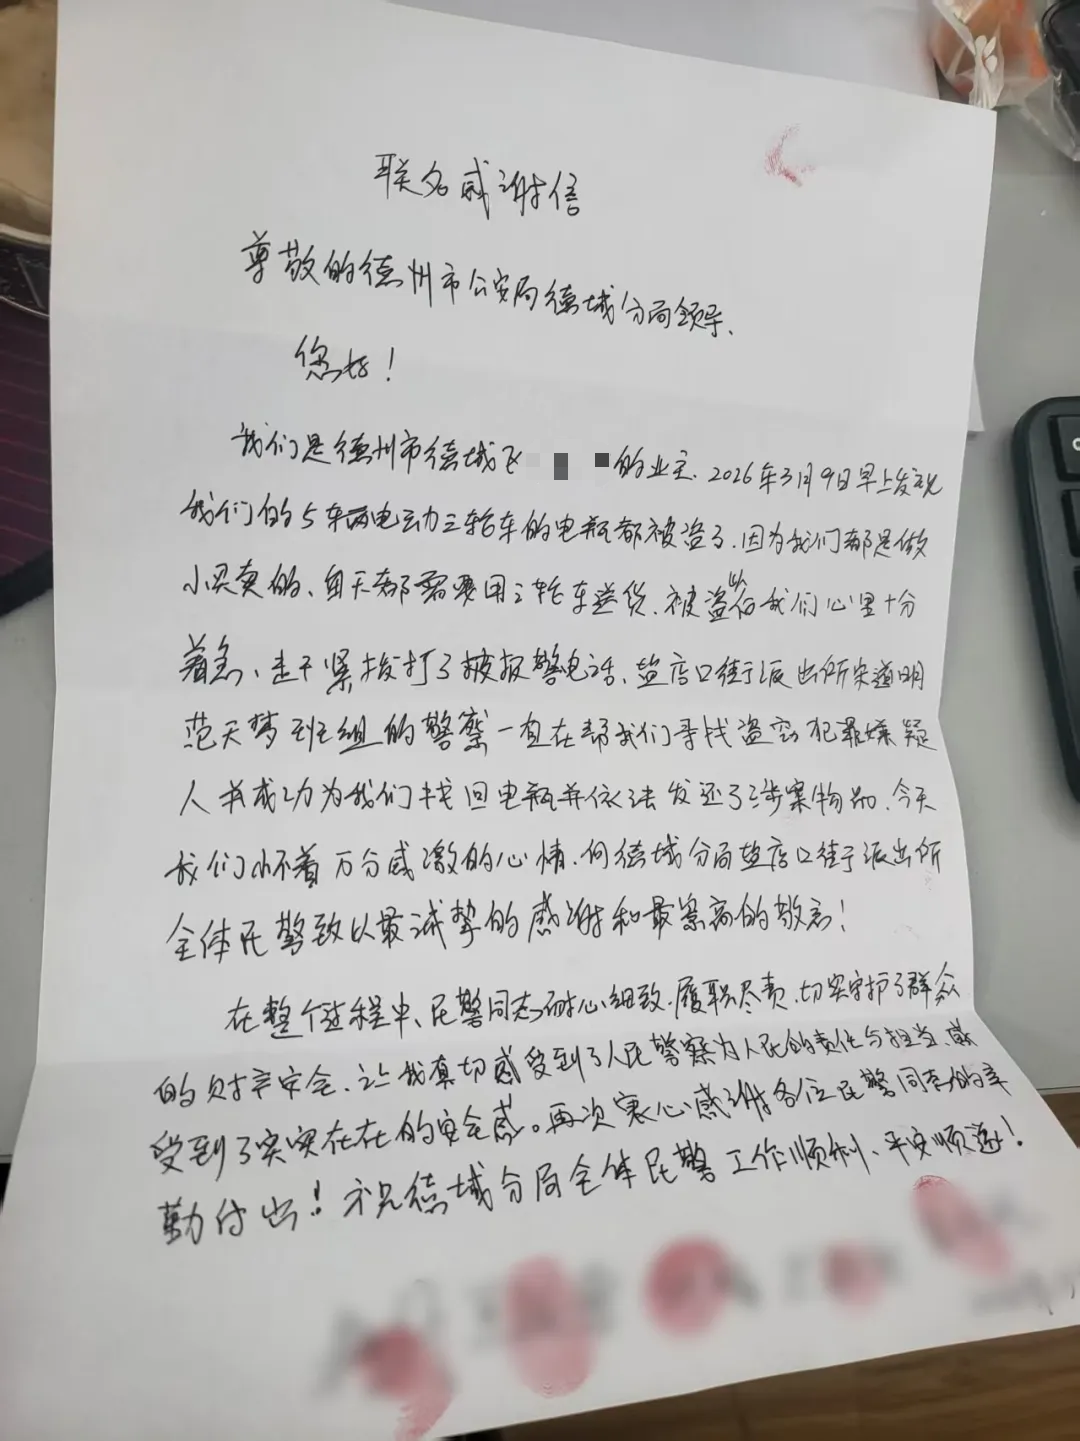 联名感谢信
尊敬的德州市公安局德城分局领导、
您好！
我们是德州市德城区 的业主、2026年3月9日早上发现
我们的5车两电动三轮车的电瓶都被盗了、因为我们都是做
小买卖的、每天都需要用三轮车送货、被盗以后我们心里十分
着急、赶干紧拨打了被报警电话、盐店口街于派出所宋道明
范天梦班组的警察一直在帮我们寻找盗窃犯罪嫌疑
人并成功为我们找回电瓶并依法发还了涉案物品、今天
我们怀着万分感激的心情、向德城分局盐店口街于派出所
全体民警致以最诚挚的感谢和最崇高的敬意！
在整个过程中、民警同志耐心细致、履职尽责、切实守护了群众
的财产安全、让我真切感受到了人民警察为人民的责任与担当、感
受到了实实在在的安全感。再次衷心感谢各位民警同志的辛
勤付出！祝德城分局全体民警工作顺利、平安顺遂！